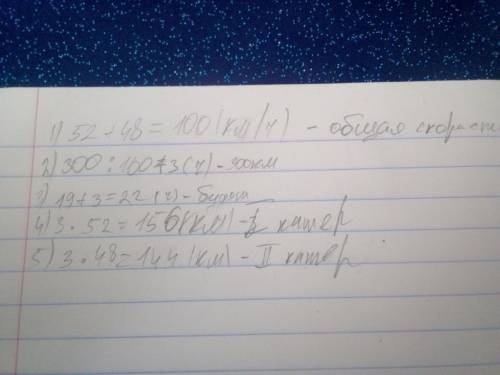 1) 52 + 48 = 100 (км/ч) - общая скорость
2) 300 : 100 = 3 (ч) - 300км
3) 19 + 3 = 22 (ч) -
4) 3 · 52 = 156 (км) - I катер
5) 3 · 48 = 144 (км) - II катер